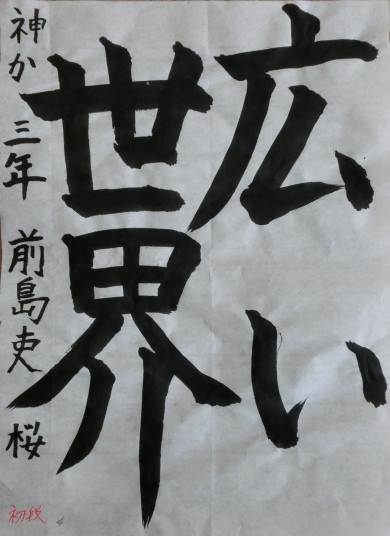 広い
世界
神か 三年 前島吏桜
初段